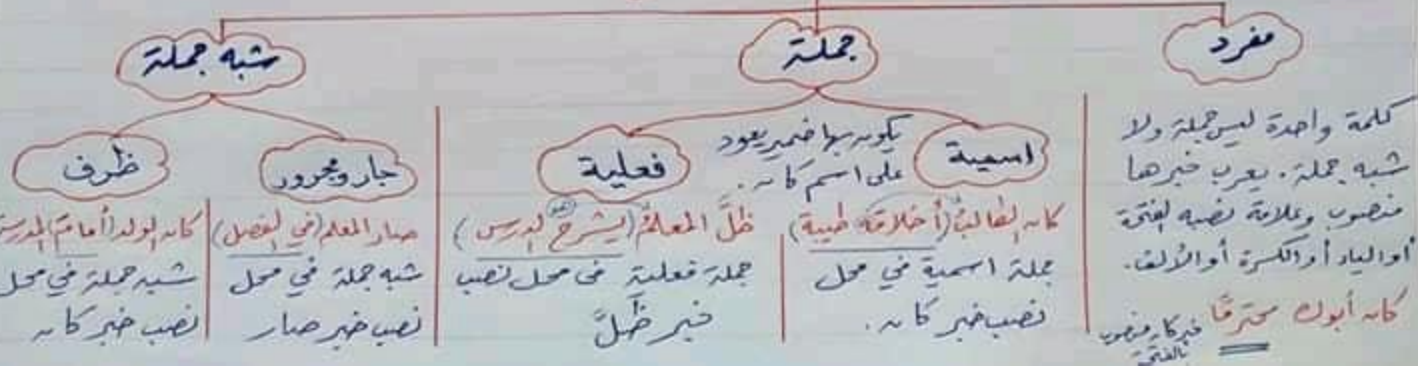 مفرد
كلمة واحدة ليس جملة ولا
شبه جملة. يعرب خبرها
منصوب وعلامة نصبه الفتحة
أو الياء أو الكسرة أو الألف.
كان أبوك محترمًا
خبر كان منصوب
بالفتحة
جملة
اسمية
يكون بها ضمير يعود
على اسم كان.
كان الطالبُ (أخلاقه طيبة)
جملة اسمية في محل
نصب خبر كان.
فعلية
ظلَّ المعلمُ (يشرحُ الدرس)
جملة فعلية فى محل نصب
خبر ظلَّ
شبه جملة
جار ومجرور
صار المعلم (في الفصل)
شبه جملة في محل
نصب خبر صار
ظرف
كان الولد (أمامَ المدرس
شبه جملة في محل
نصب خبر كان